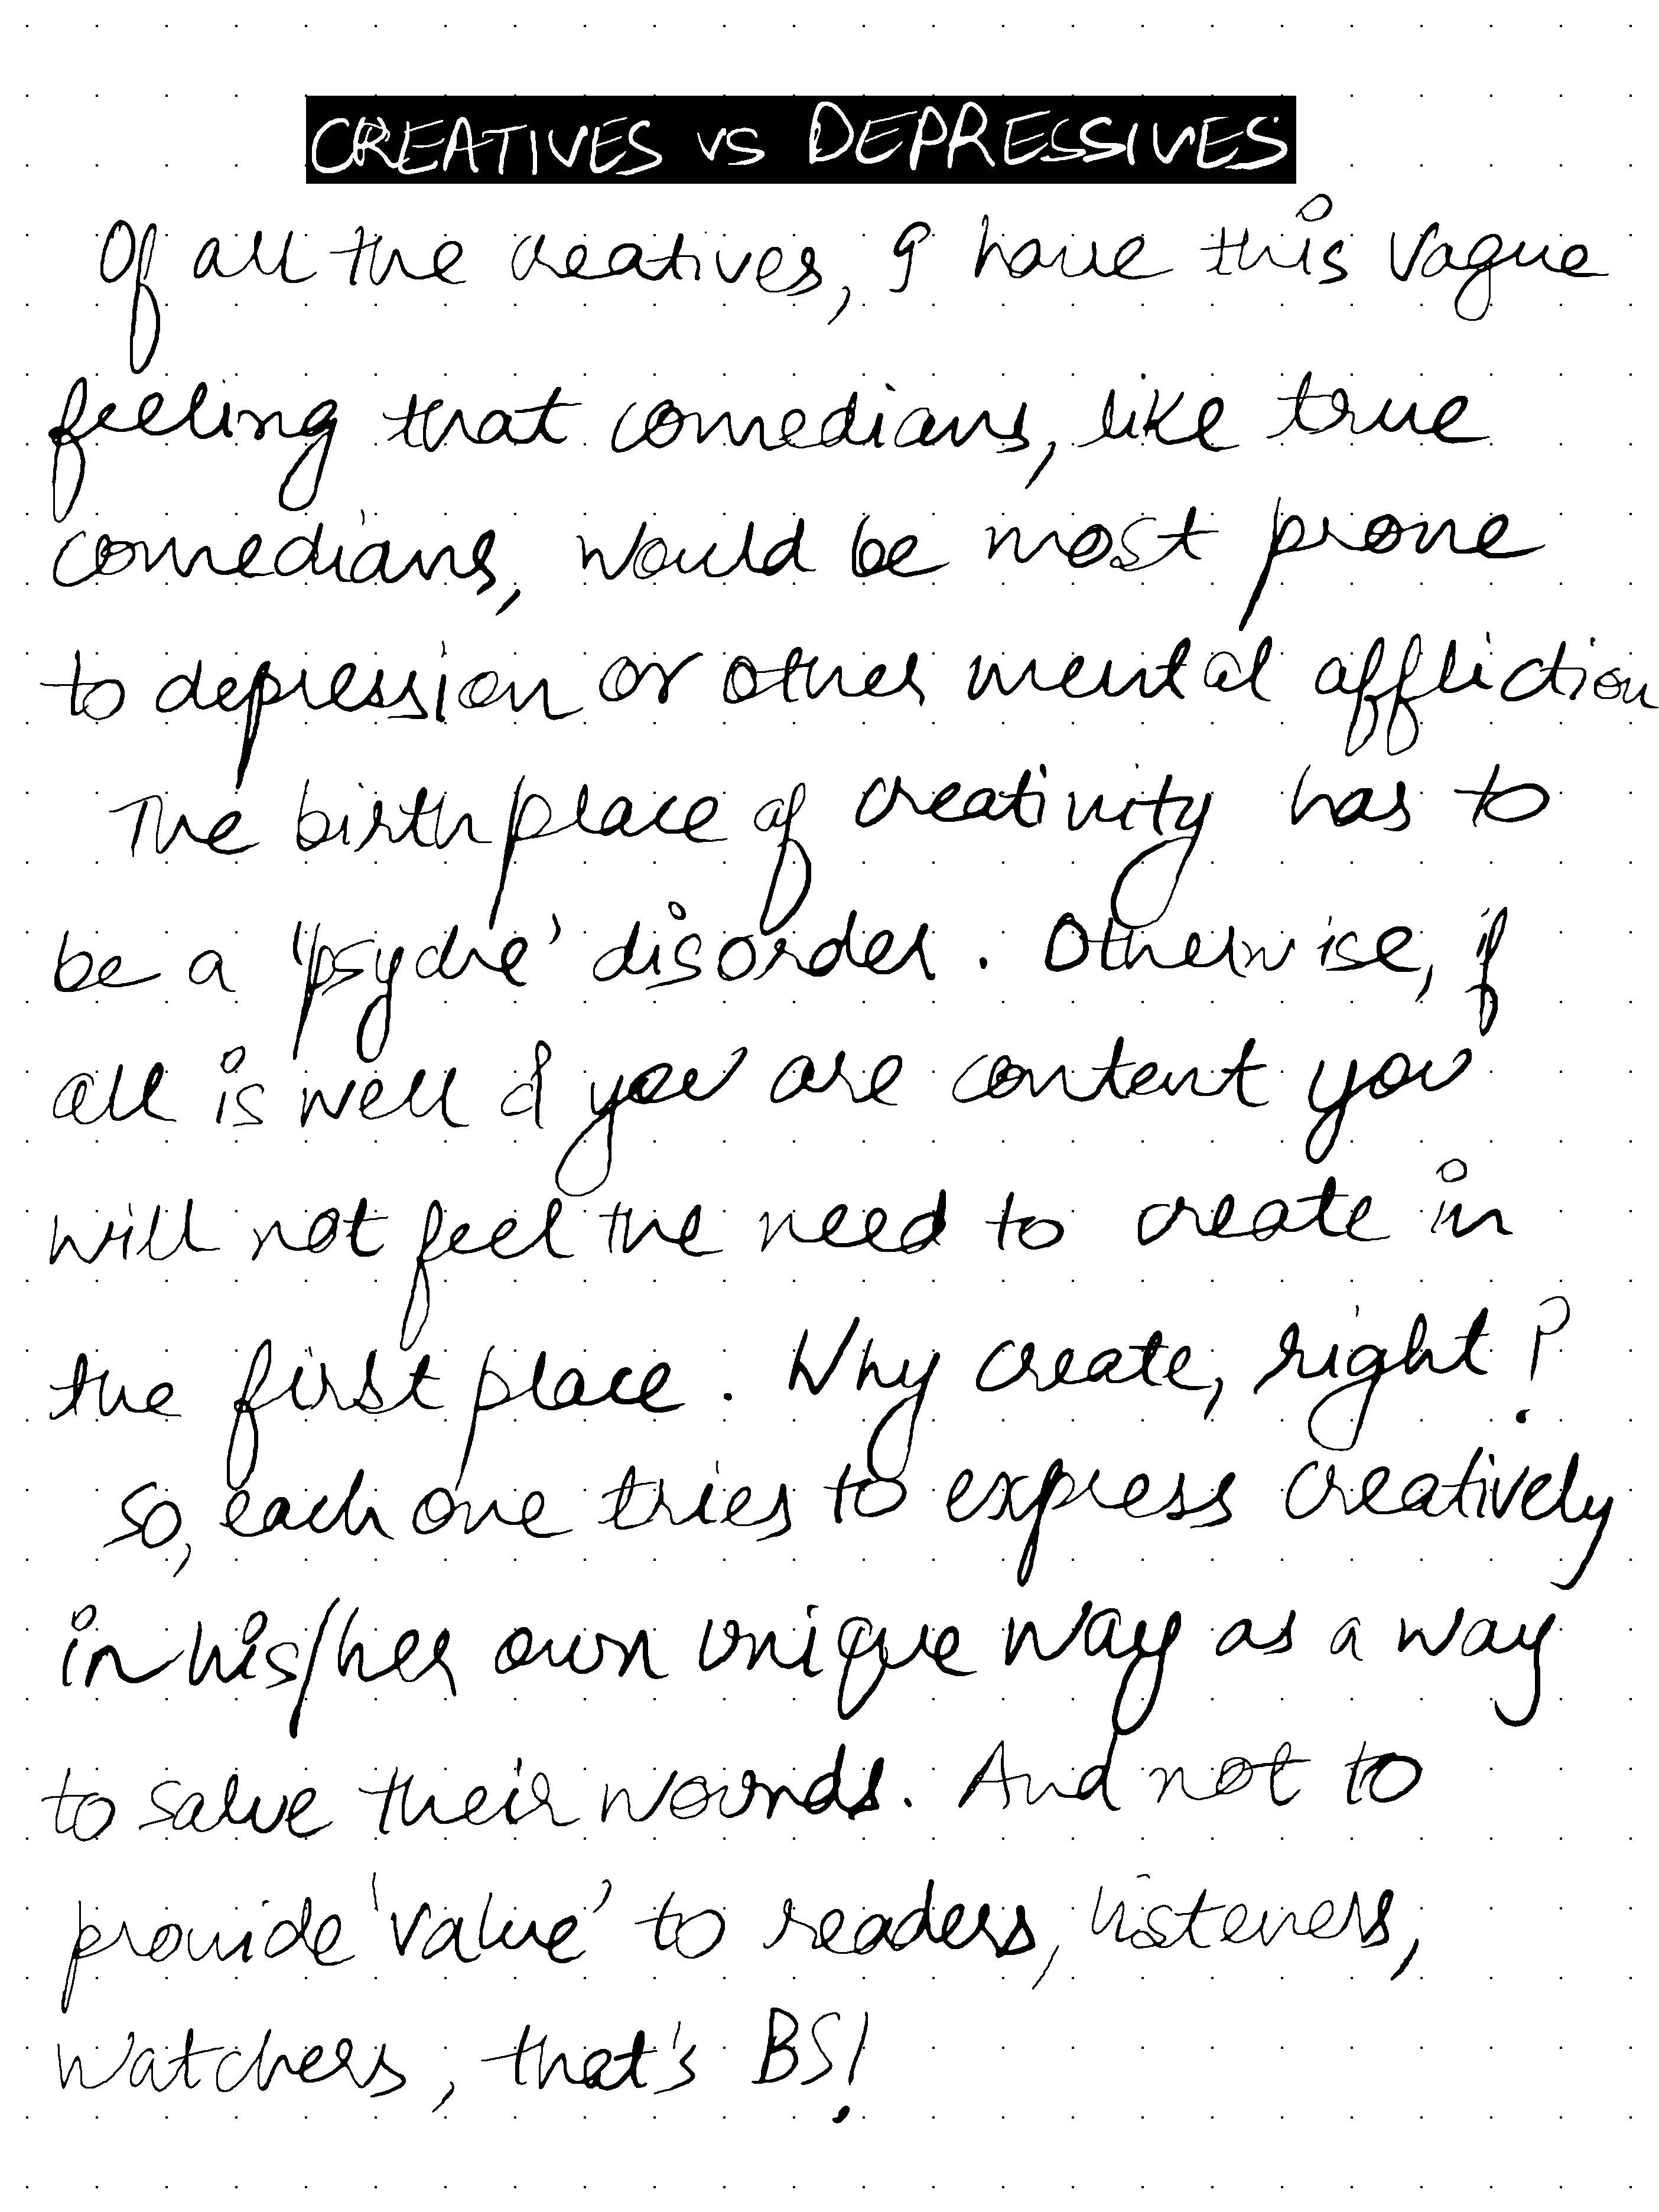 CREATIVES VS DEPRESSIVES
Of all the creatives, I have this vague
feeling that comedians, like true
comedians, would be most prone
to depression or other mental affliction
The birthplace of creativity has to
be a 'psyche' disorder. Otherwise, if
all is well & you are content you
will not feel the need to create in
the first place. Why create, right?
So, each one tries to express creatively
in his/her own unique way as a way
to salve their wounds. And not to
provide 'value' to readers, listeners,
watchers, that's BS!